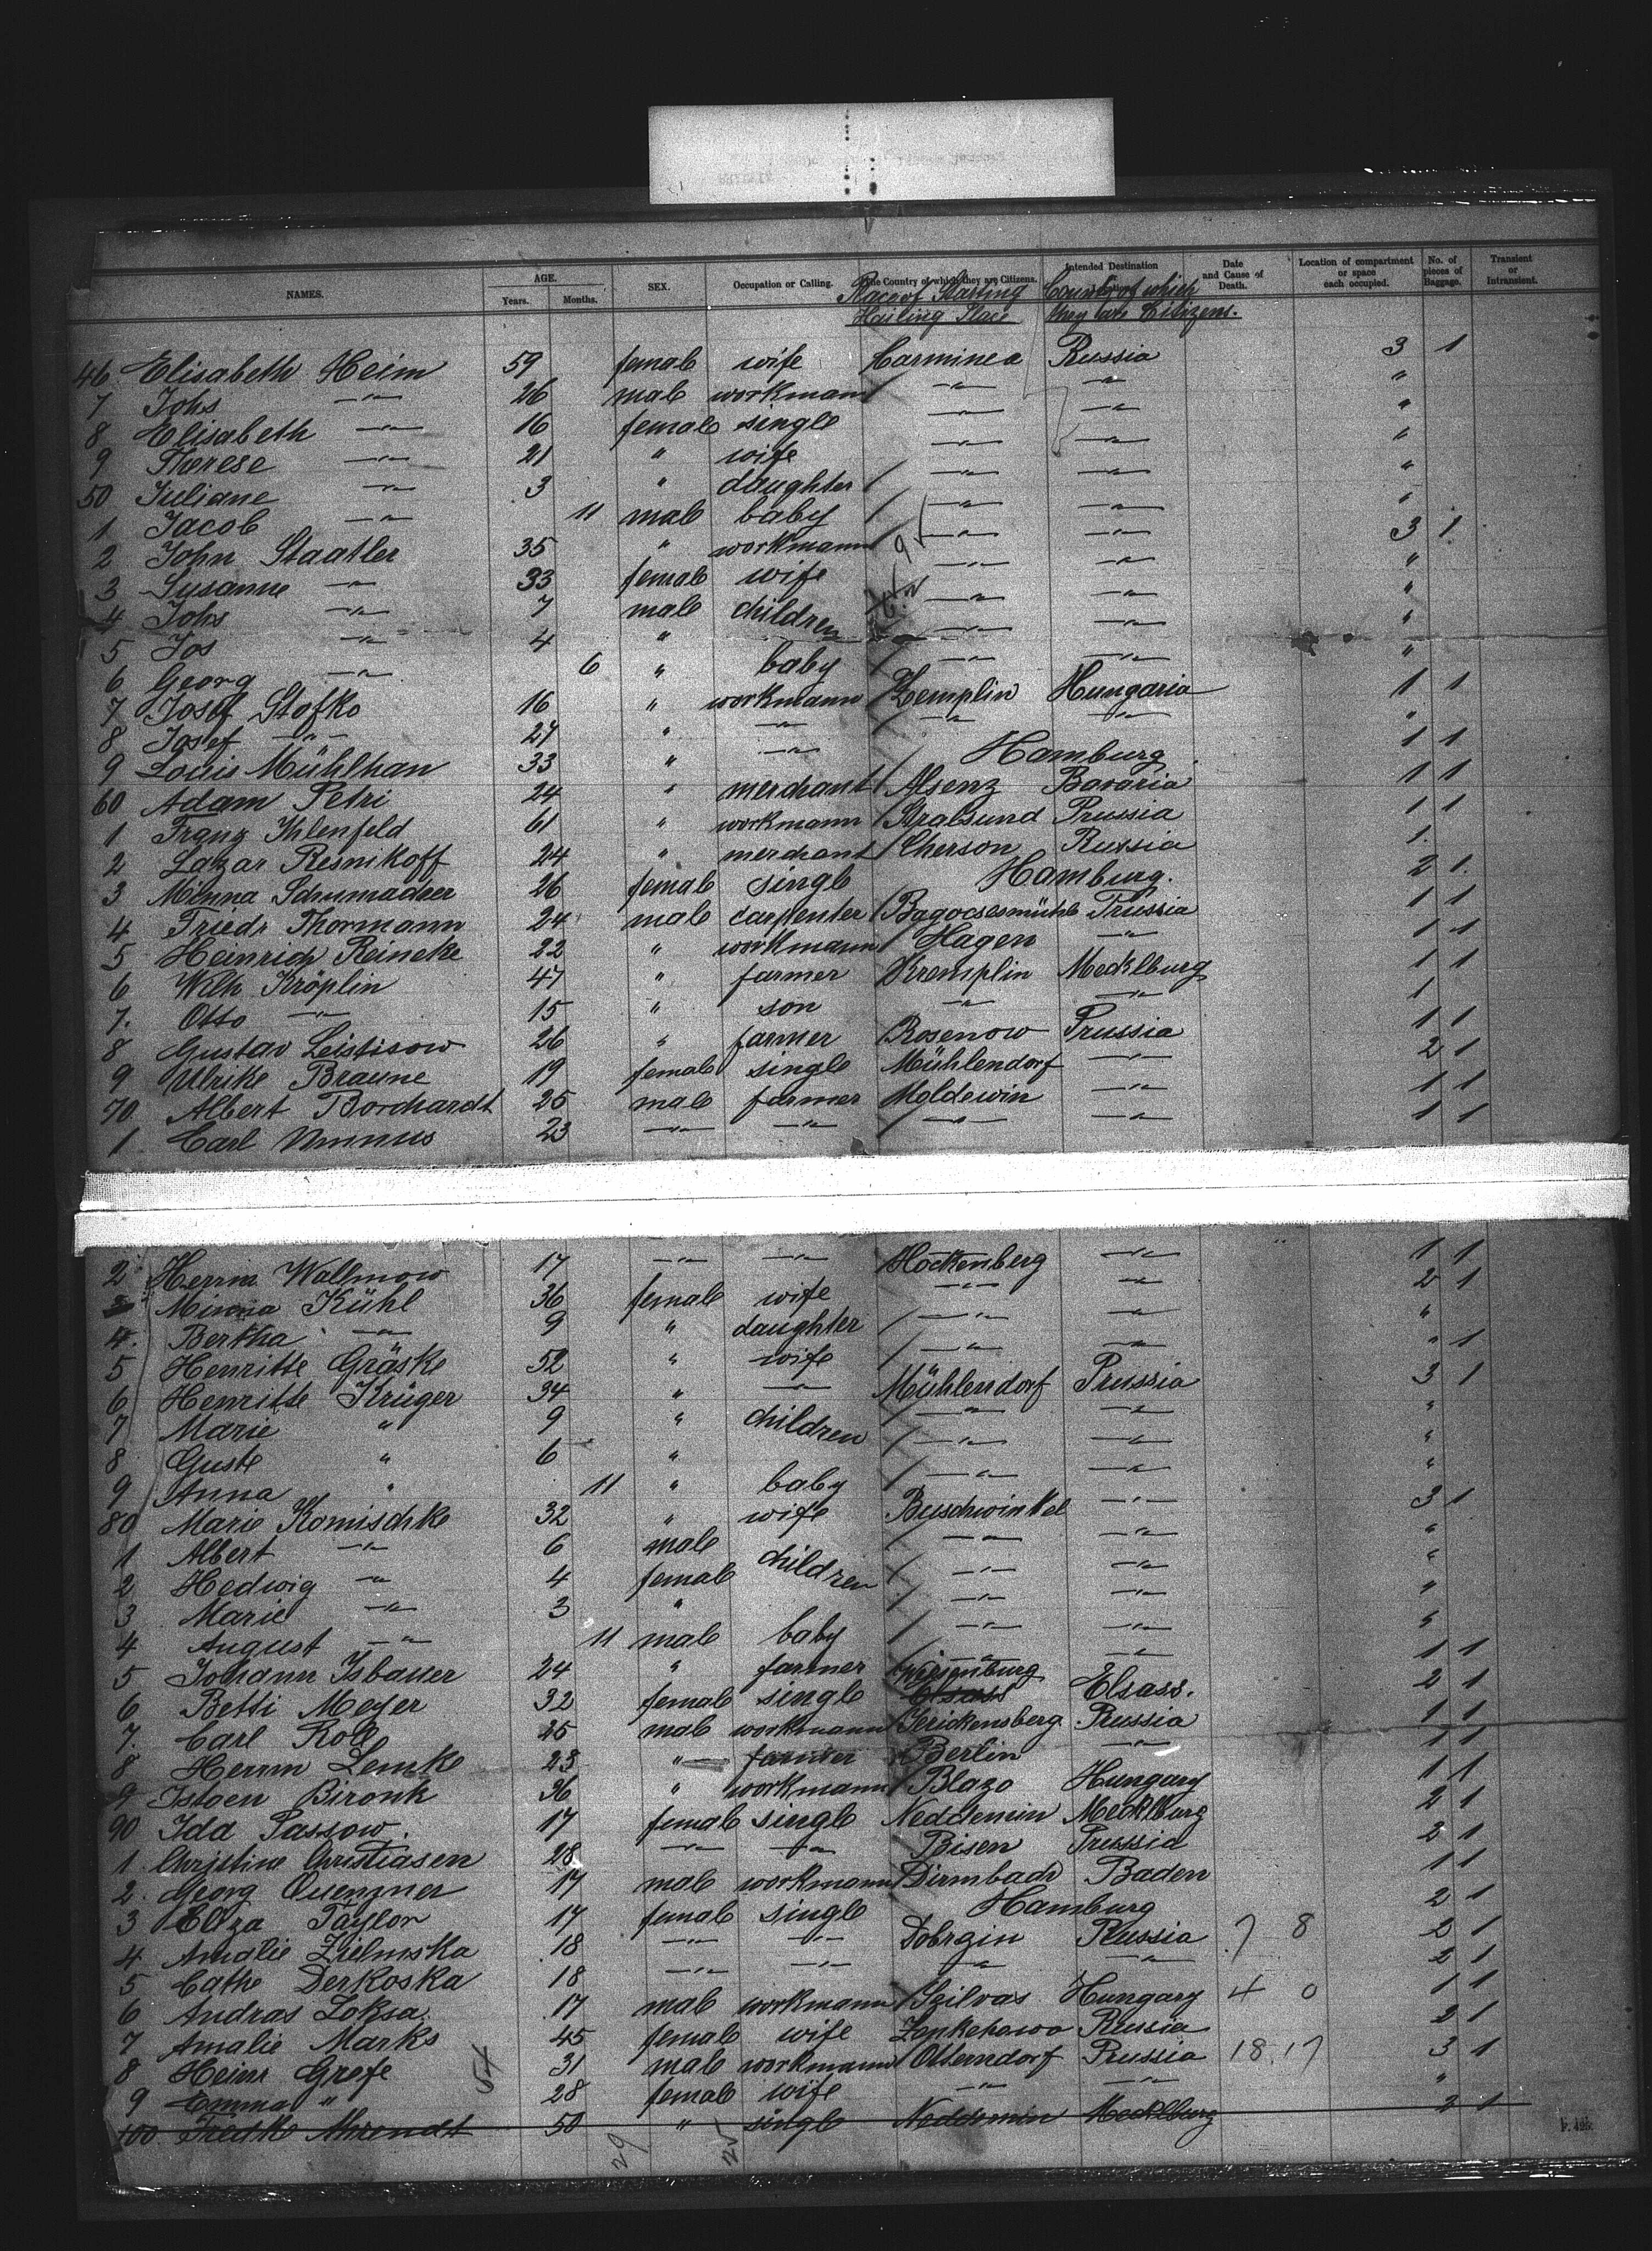 NAMES. AGE. Years. Months. SEX. Occupation or Calling. The Country of which they are Citizens. Intended Destination Date and Cause of Death. Location of compartment or space each occupied. No. of pieces of Baggage. Transient or Intransient.
Place of Starting Country of which
Hailing Place they are Citizens.
46 Elisabeth Heim 59 female wife Carminea Russia 3 1
7 Johs —"— 26 male workmann —"— —"— "
8 Elisabeth —"— 16 female single —"— —"— "
9 Therese —"— 21 " wife —"— —"— "
50 Juliane —"— 3 " daughter —"— —"— "
1 Jacob —"— 11 male baby —"— —"— "
2 John Staatler 35 " workmann —"— —"— 3 1
3 Susanne —"— 33 female wife —"— —"— "
4 Johs —"— 7 male children —"— —"— "
5 Jos —"— 4 " —"— —"— "
6 Georg —"— 6 " baby —"— —"— "
7 Josef Stofko 16 " workmann Zemplin Hungaria 1 1
8 Josef —"— 27 " —"— —"— —"— "
9 Louis Mühlhan 33 " —"— Hamburg 1 1
60 Adam Petri 24 " merchant Alsenz Bavaria 1 1
1 Franz Ihlenfeld 61 " workmann Stralsund Prussia 1 1
2 Lazar Resnikoff 24 " merchant Cherson Russia 1
3 Minna Schumacher 26 female single Hamburg. 2 1
4 Friedr Thormann 24 male carpenter Prussia 1 1
5 Heinrich Reineke 22 " workmann Hagen —"— 1 1
6 Wilh Kröplin 47 " farmer Kremplin Mecklburg 1 1
7. Otto —"— 15 " son —"— —"— 1
8 Gustav Leistisow 26 " farmer Rosenow Prussia 1 1
9 Ulrike Braune 19 female single Mühlendorf —"— 2 1
70 Albert Borchardt 25 male farmer Moldewin —"— 1 1
1 Carl 23 —"— —"— —"— —"— 1 1
2 Herrm Wallmow 17 —"— —"— Hockenberg —"— 1 1
3 Minna Kühl 36 female wife —"— —"— 2 1
4. Bertha —"— 9 " daughter —"— —"— "
5 Henritte Gräske 52 " wife —"— —"— " 1
6 Henritte Krüger 34 " —"— Mühlendorf Prussia 3 1
7 Marie " 9 " children —"— —"— "
8 Guste " 6 " —"— —"— "
9 Anna " 11 " baby —"— —"— "
80 Marie Komischke 32 " wife Buschwinkel —"— 3 1
1 Albert —"— 6 male children —"— —"— "
2 Hedwig —"— 4 female —"— —"— "
3 Marie —"— 3 " —"— —"— "
4 August —"— 11 male baby —"— —"— "
5 Johann Isbaner 24 " farmer —"— —"— 1 1
6 Betti Meyer 32 female single Weissenburg Elsass. 2 1
7. Carl Roll 25 male workmann Jerickensberg Prussia 1 1
8 Herrm Lemke 23 " farmer Berlin —"— 1 1
9 Istoen Bironk 36 " workmann Blazo Hungary 1 1
90 Ida Passow. 17 female single Neddemin Mecklburg 2 1
1 Christine Christiasen 28 —"— —"— Bisen Prussia 2 1
2. Georg Quenzner 17 male workmann Dirmbach Baden 1 1
3 Eliza Taylor 17 female single Hamburg 2 1
4 Amalie Zielinska 18 —"— —"— Dobrzin Russia 7 8 2 1
5 Cathe Derkoska 18 —"— —"— —"— —"— 2 1
6 Andras Loksa 17 male workmann Szilvas Hungary 4 0 1 1
7 Amalie Marks 45 female wife Russia 2 1
8 Heinr Grefe 31 male workmann Otterndorf Prussia 18 17 3 1
9 Emma " 28 female wife —"— —"— "
100 Fredke Ahrendt 50 " single Neddemin Mecklburg 2 1
54 29 25
F. 425.